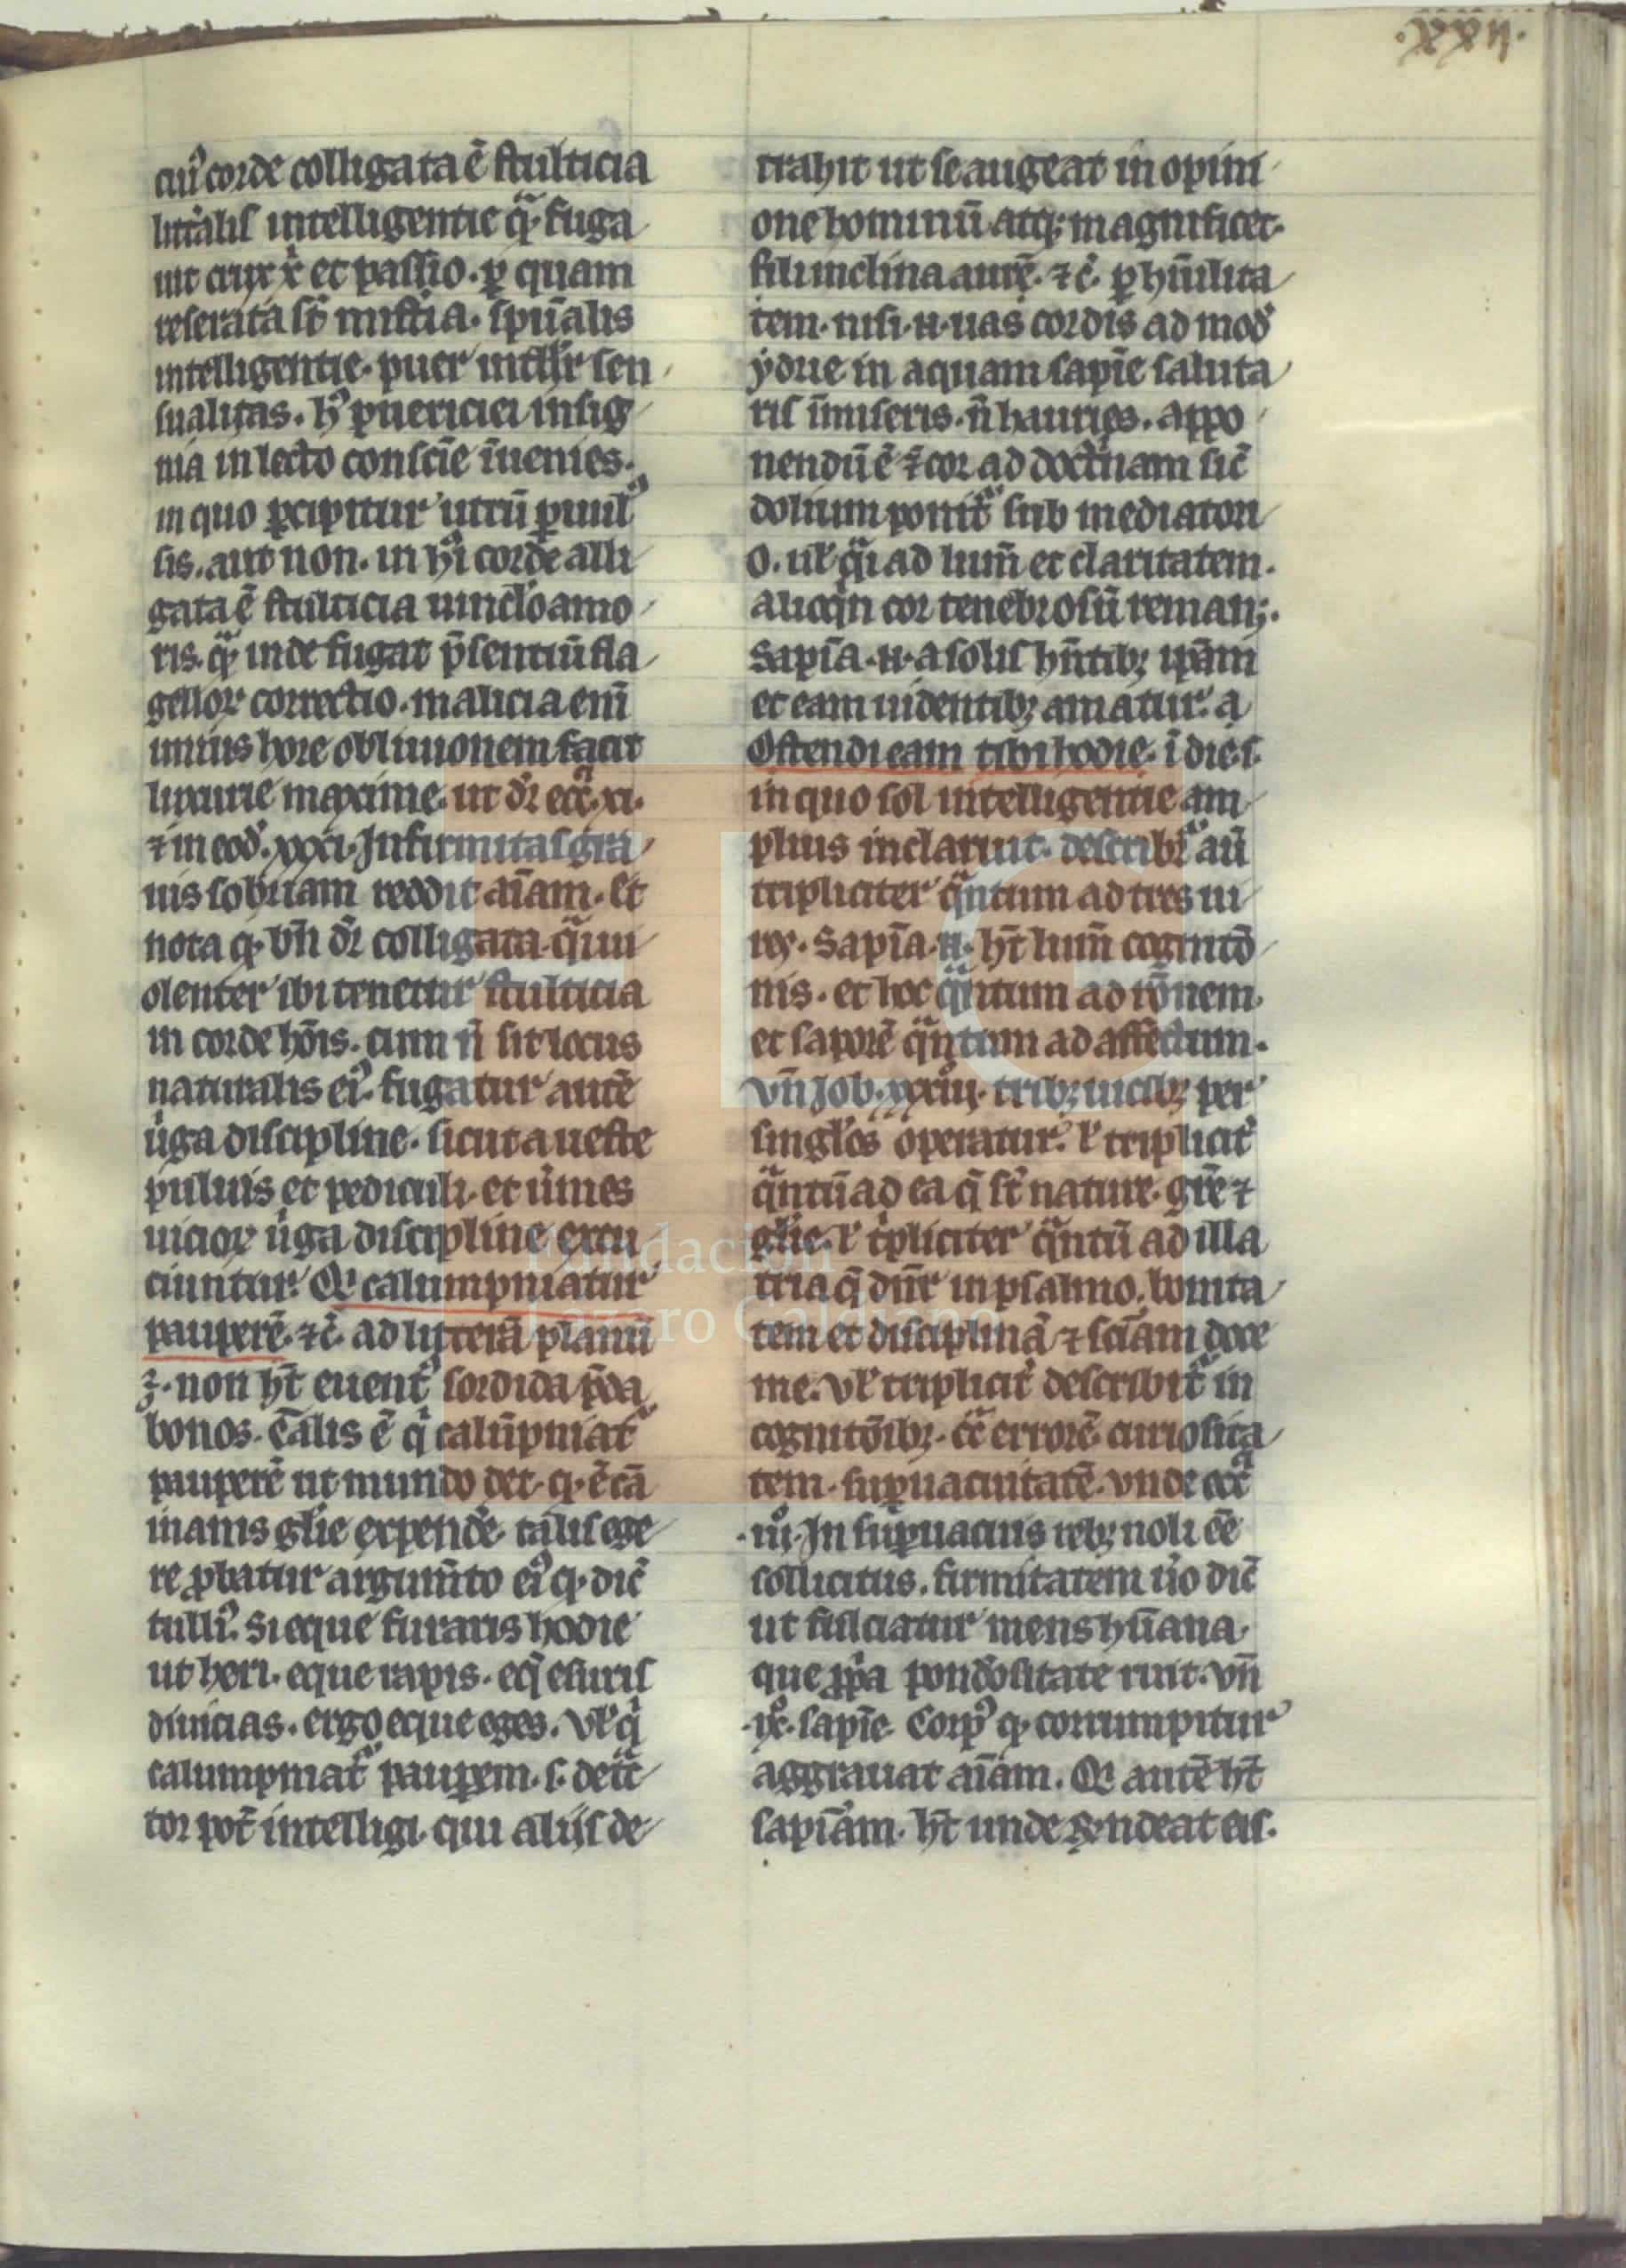 .xxxii.
cui᷒ corde colligata ē stulticia
litt̾alis intelligentie q̄ fuga
uit crux x̄ et passio. ꝑ quam
reserata s̄t misťia. spūalis
intelligentie. puer sen
sualitas. h᷒ puericiei insig
nia in lecto consciē īuenies.
in quo ꝑcipitur utrū
sis. aut non. in h᷒i corde alli
gata ē stulticia uinclo amo
ris. q̄ inde fugat p̄sentiū fla
gelloꝝ correctio. malicia eni̅
unius hore obliuionem facit
luxurie maxime. ut dr̄ ecc̄. xi.
⁊ in eod̾. xxxi. Infirmitas gra
uis sobriam reddit aīam. Et
nota q. bn̄ dr̄ colligata. q̄ ui
olenter ibi tenetur stulticia
in corde hōis. cum n̄ sit locus
naturalis ei᷒. fugatur autē
u̾ga discipline. sicut a ueste
puluis et pediculi. et u̾mes
uicioꝝ u̾ga discipline excu
ciuntur. Qi calumpniatur
pauperē. ⁊c̄. ad litterā planū
ꝫ. non hт̄ euent̾ sordida p̄da
bonos. t̄alis ē q̇ calūpniat᷒
pauperē ut mundo det. q. ē cā
inanis glīe expendē. talis ege
re ꝓbatur argum̄to ei᷒ q. dic̄
tulli᷒. Si eque furaris hodie
ut heri. eque rapis. eq̄ esuris
diuicias. ergo eque eges. Vl̾ q̇
calumpniat᷒ pauꝑem. s. det̄c
tor pot̄ intelligi. qui alijs de
trahit ut se augeat in opini
one hominū atqꝫ magnificet.
fili inclina aurē. ⁊c̄. ꝑ hūilita
tem. nisi. n̄. uas cordis ad mod̾
ydrie in aquam sapīe saluta
ris īmiseris. n̄ hauries. appo
nendū ē ⁊ cor ad doct̾nam sic̄
dolium ponit᷒ sub mediatori
o. ul̾ q̄i ad lum̄ et claritatem.
alioq̇n cor tenebrosū remanꝫ.
Sapīa. n̄. a solis hn̄tibꝫ ip̄am
et eam uidentibꝫ amatur. a
Ostendi eam tibi hodie. ī die. s.
in quo sol intelligentie am
plius inclaruit. describit᷒ aū
tripliciter q̄ntum ad tres ui
res. Sapīa. n̄. hт̄ lum̄ cognitō
nis. et hoc q̄ntum ad rōnem.
et saporē q̄ntum ad affectum.
Vn̄ Job. xxxiij. tribꝫ uicibꝫ per
singl̾os operatur. l̾ triplicit̾
q̄ntū ad ea q̄ s̄t nature. gr̄e ⁊
glīe. l̾ t̾pliciter q̄ntū ad illa
tria q̄ dn̄r in psalmo. bonita
tem et disciplinā ⁊ scīam doce
me. Vl̾ triplicit̾ describit᷒ in
cognitōibꝫ. cͨ errorē curiosita
tem. suꝑuacuitatē. vnde ecc̄
.iij. In suꝑuacuis rebꝫ noli eē
sollicitus. firmitatem u̾o dic̄
ut fulciatur mens hūana.
que ꝓpa pond̾ositate ruit. Vn̄
.ix. sapīe. Corp᷒ q. corrumpitur
aggrauat aīam. Qi autē hт̄
sapīam. hт̄ unde r̄ndeat eis.